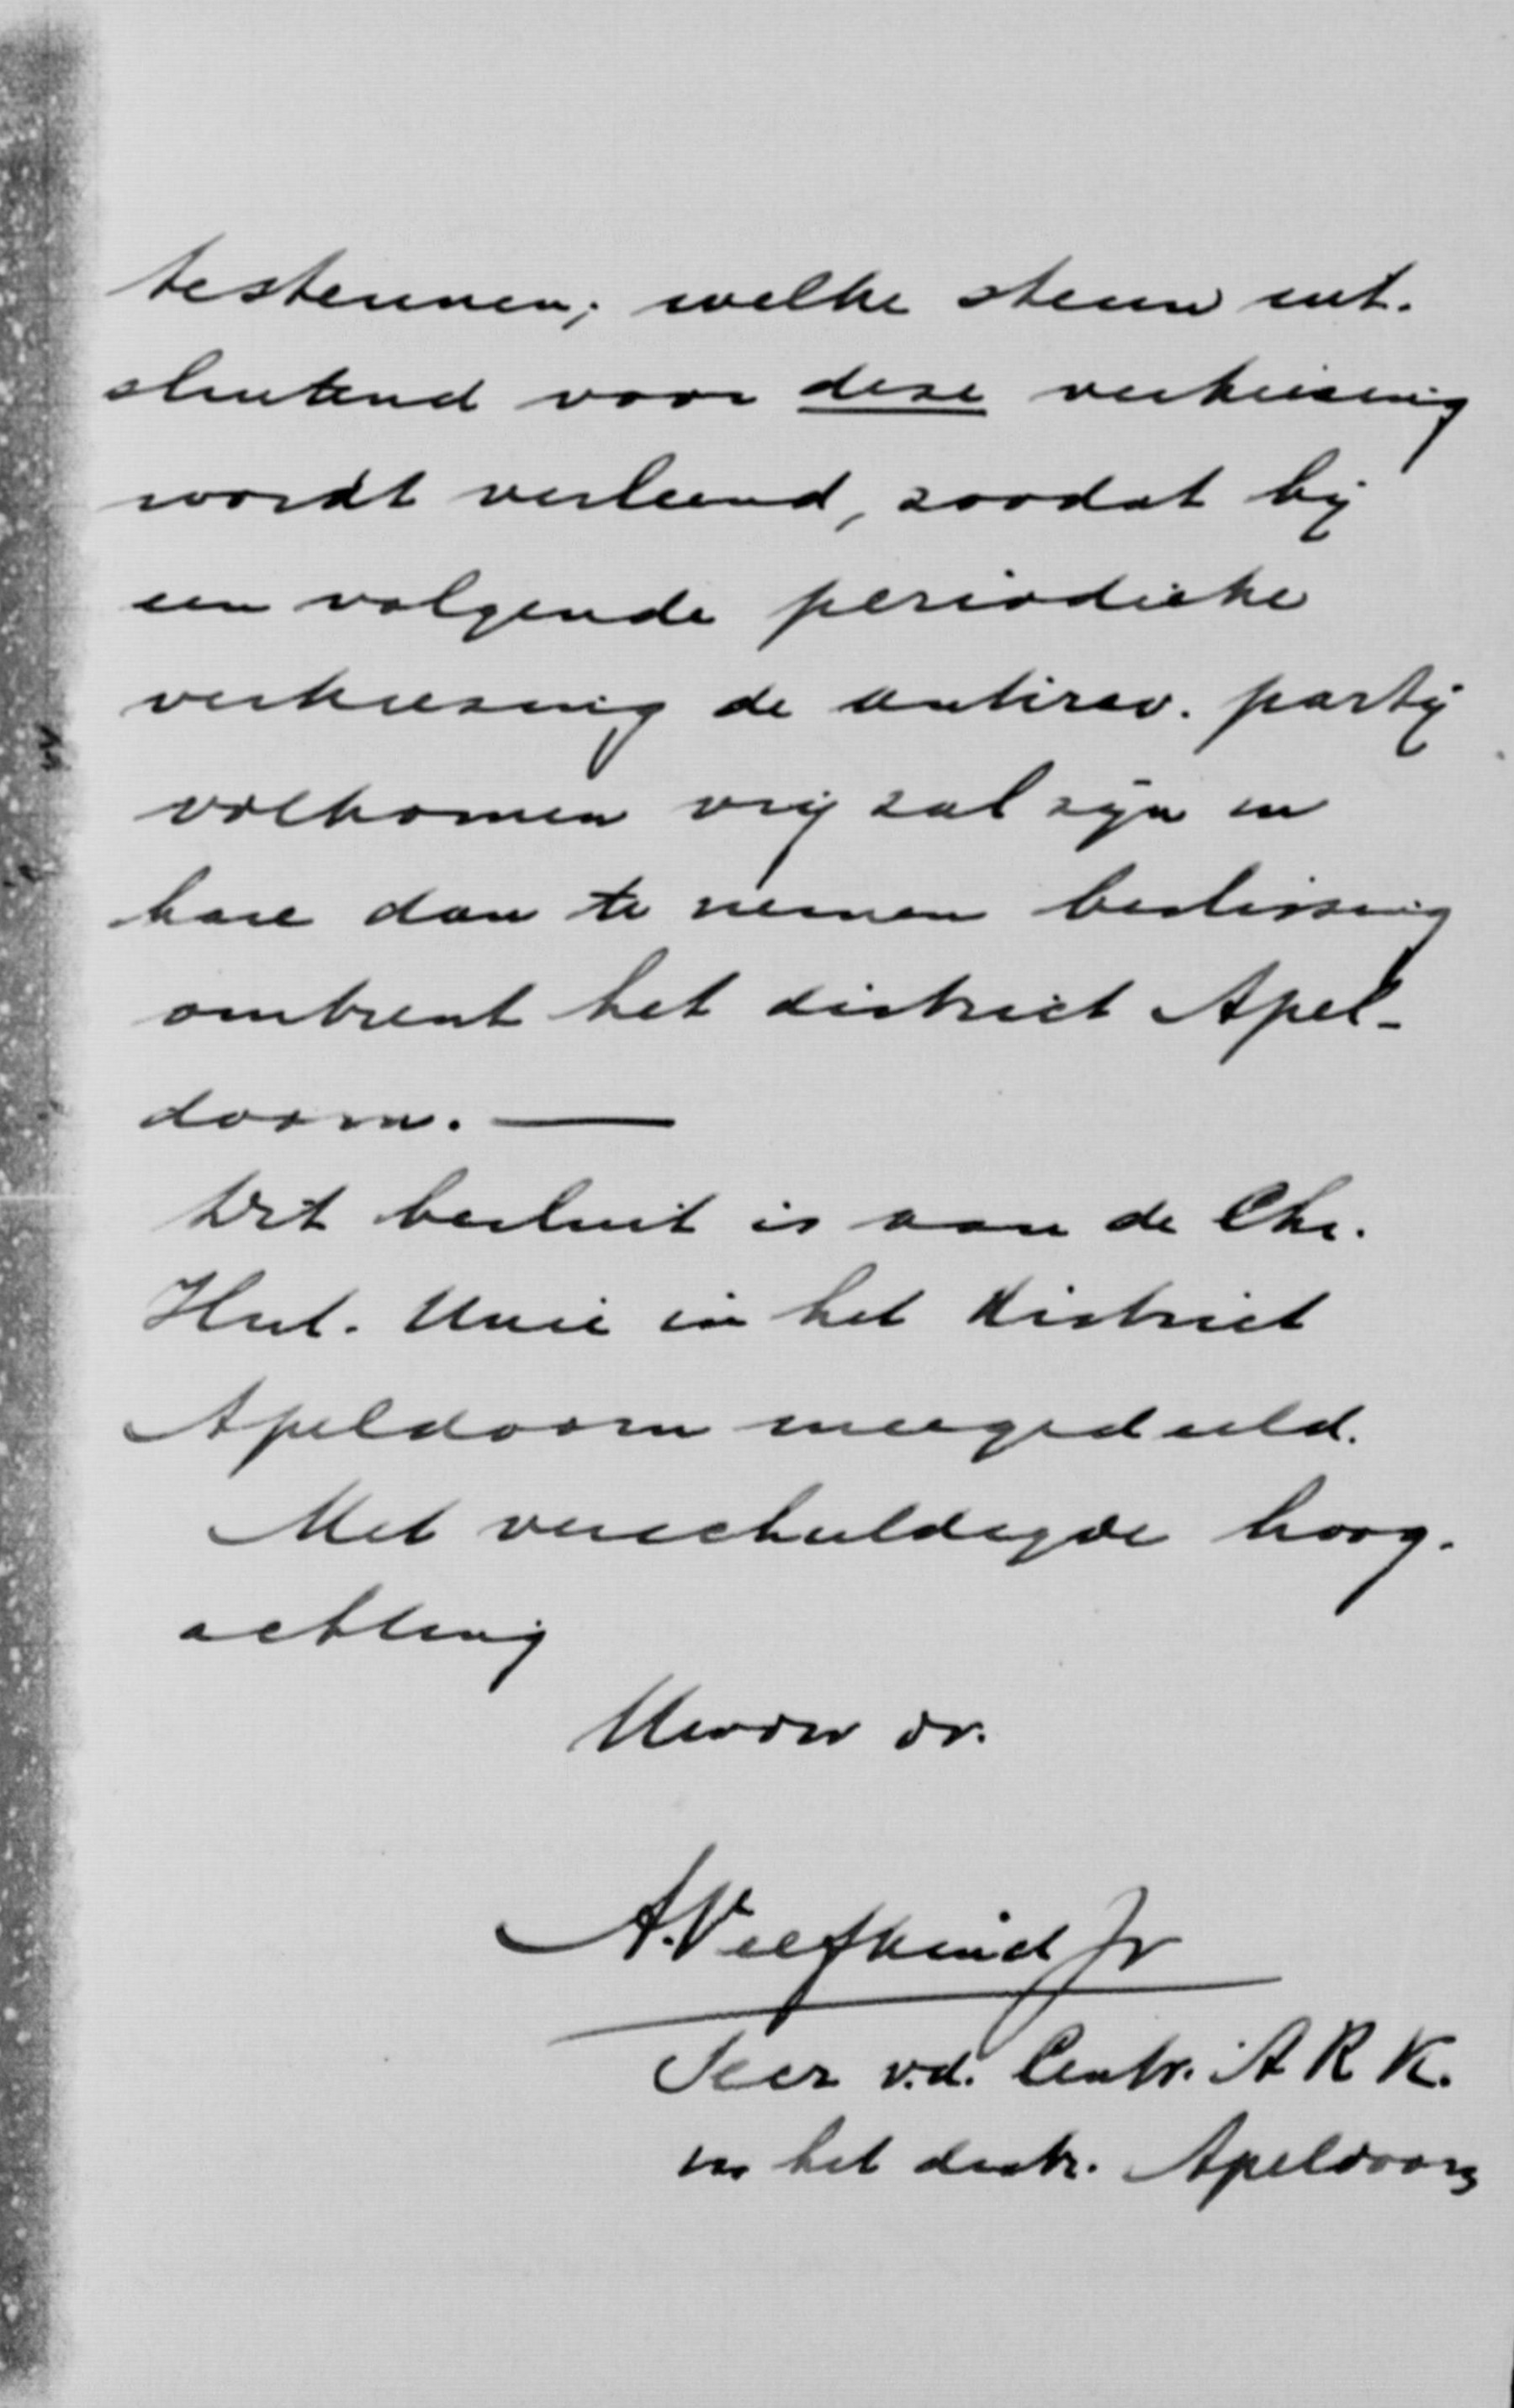 te steunen; welke steun uit.
sluitend voor deze verkiezing
wordt verleend, zoodat bij
een volgende periodieke
verkiezing de antirev. partij
volkomen vrij zal zijn in
hare dan te nemen beslissing
omtrent het district Apel-
doorn. —
Dit besluit is aan de Chr.
Hist. Unie in het district
Apeldoorn meegedeeld.
Met verschuldigde hoog.
achting
Uwdw dr.
A. Veefkind Jr
Secr v.d. Centr. A R K.
in het distr. Apeldoorn